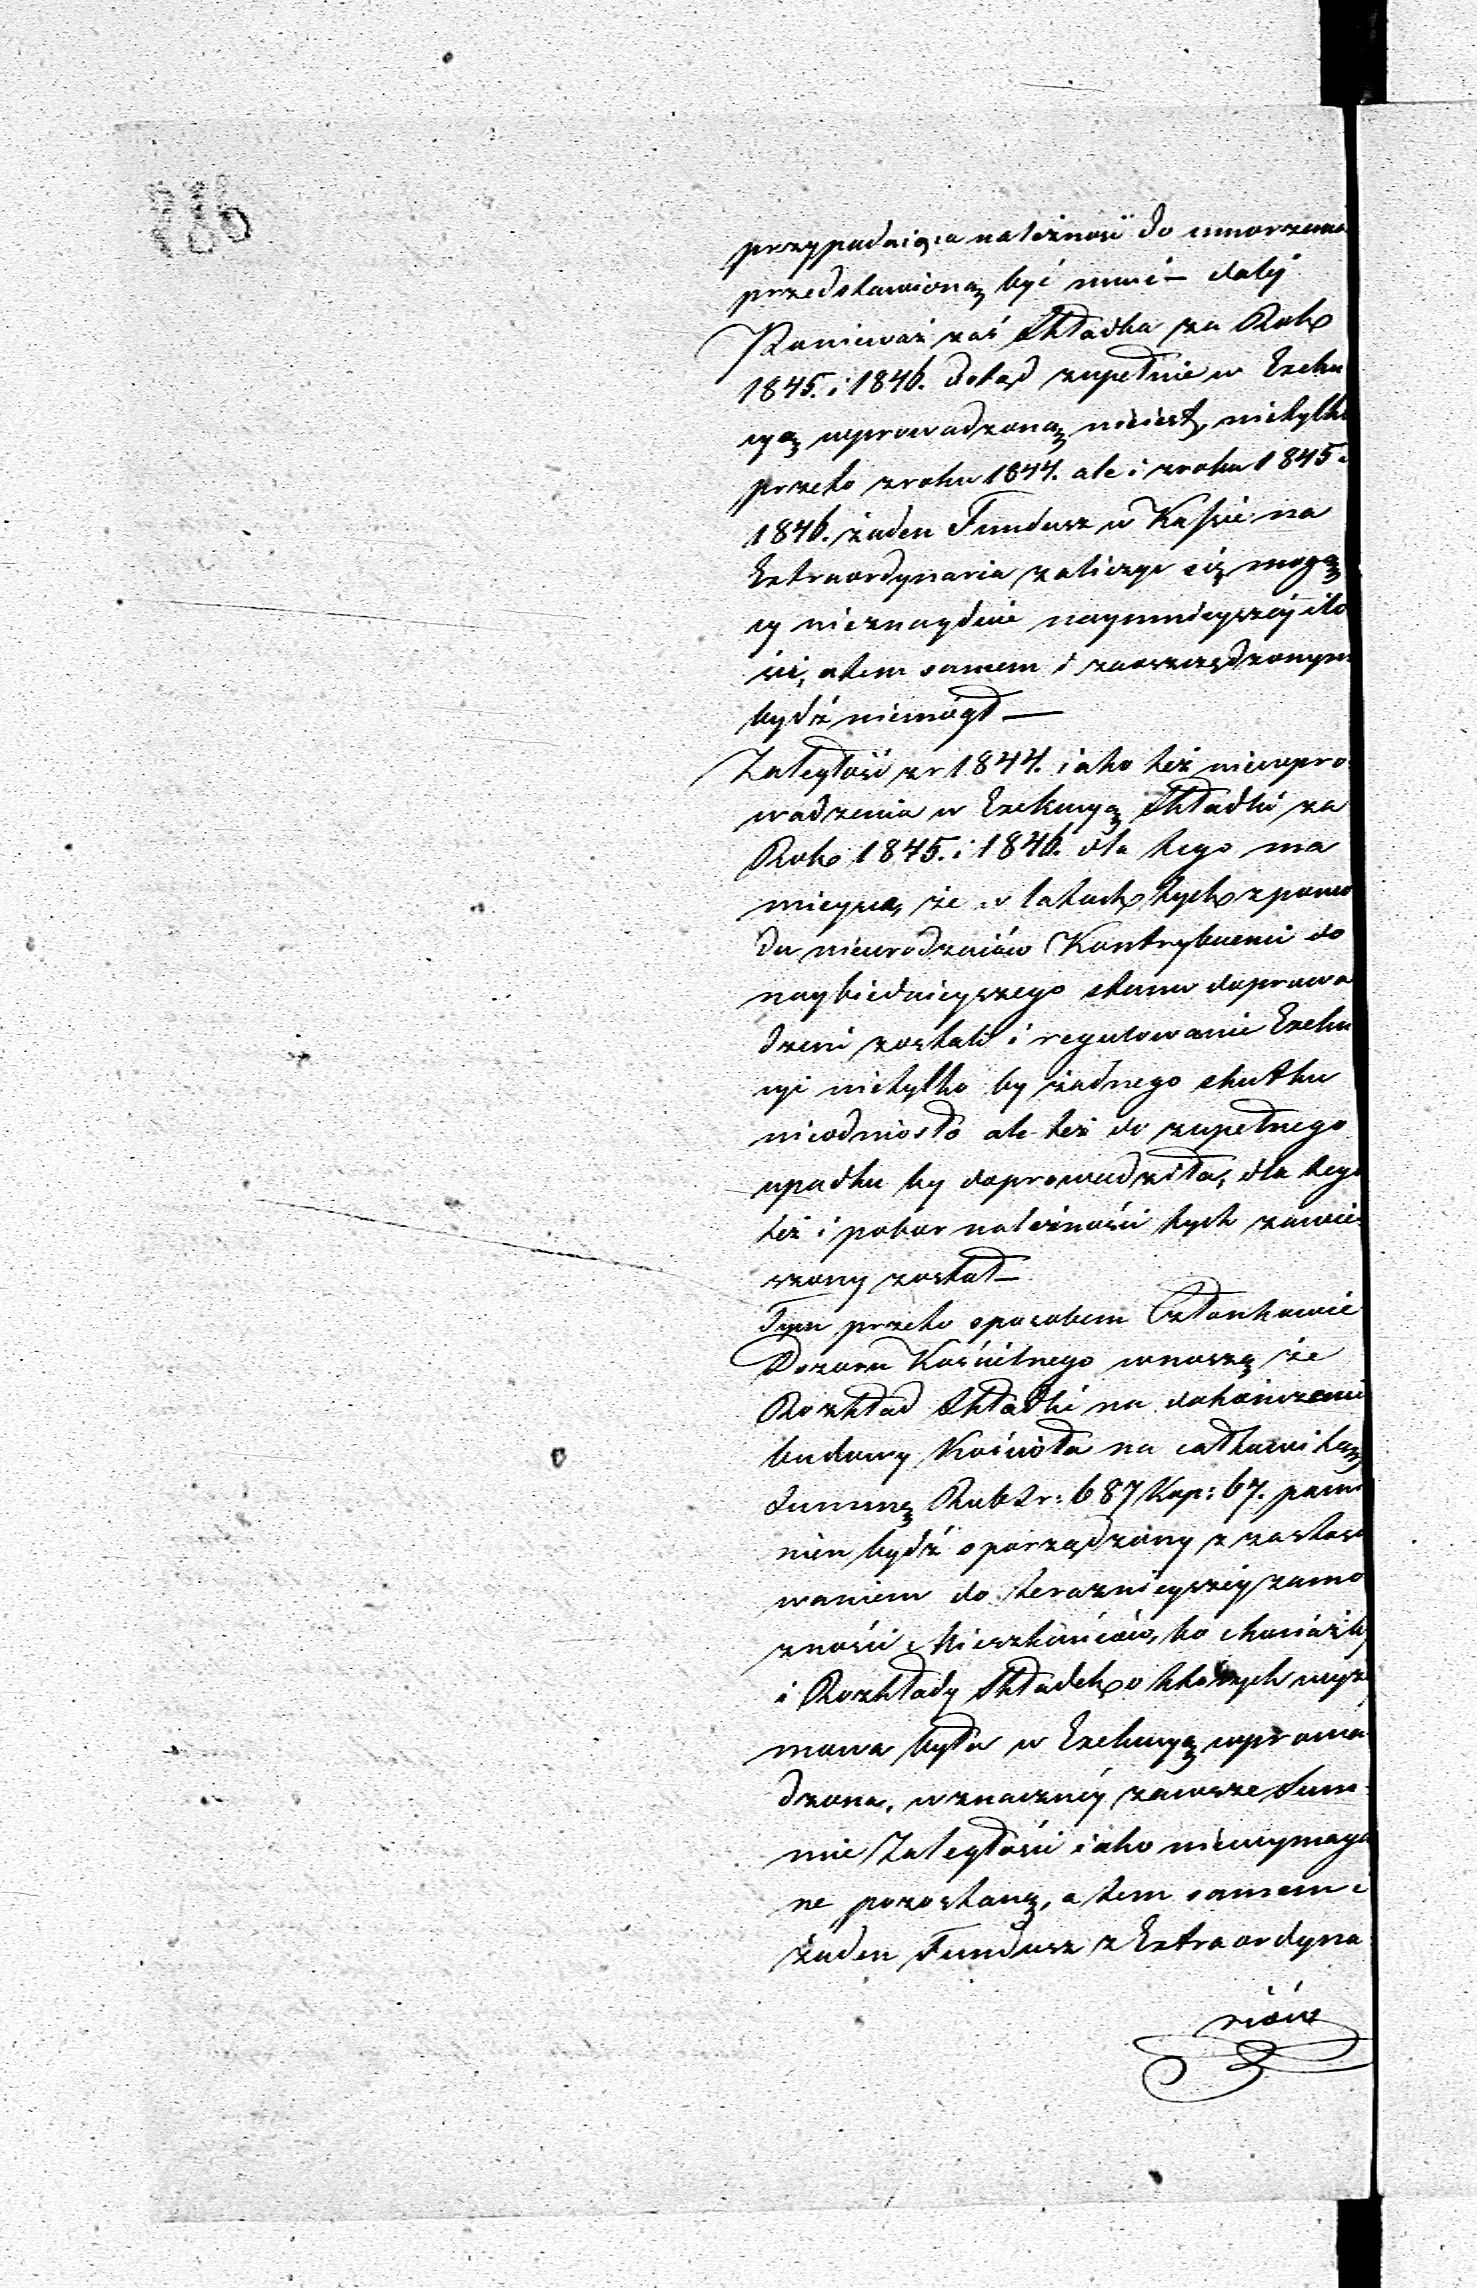 przypadaiąca należność do umorzenia
przedstawioną być musi — daléj
Ponieważ zaś Składka za Rok
1845. i 1846. dotąd zupełnie w Exeku
cyą wprowadzoną nie iest, nietylko
przeto z roku 1844. ale i z roku 1845 i
1846. żaden Fundusz w Kassie na
Extraordynaria zaliczyć się mogą
cy nieznaydzie naymnieyszéy ilo
ści, atem samem i zaoszczędzonym
bydź niemógł —
Zaległość z r 1844. iako też niewpro
wadzenia w Exekucyą Składki za
Rok 1845. i 1846. dla tego ma
mieysce, że w latach tych z powo
du nieurodzaiów Kontrybuenci do
naybiednieyszego stanu doprowa
dzeni zostali i regulowanie Exeku
cyi nietylko by żadnego skutku
nieodniosło ale też do zupełnego
upadku by doprowadziła, dla tego
też i pobor należności tych zawie
szony został —
Tym przeto sposobem Członkowie
Dozoru Kościelnego wnoszą że
Rozkład Składki na dokończenie
budowy Kościoła na całkowitą
Summę Rub Sr: 687 Kop: 67. powi
nien bydź sporządzony z zastoso
waniem do teraznieyszéy zamo
żności Mieszkańców, bo chociażby
i Rozkłady Składek o których wyż
mowa była w Exekucyą wprowa
dzona, w znacznéy zawsze Sum
mie Zaległości iako niewymaga
ne pozostaną, a tem samem i
żaden Fundusz z Extraordyna
riów